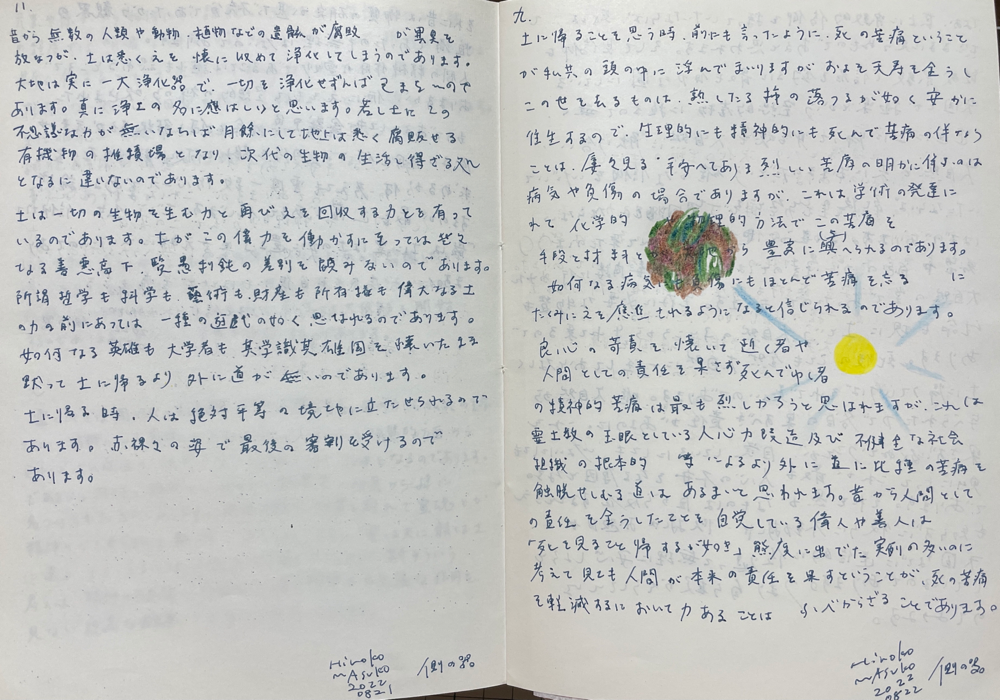 11.
昔から無数の人類や動物、植物などの遺骸が腐敗 が臭臭を
放なつが、土は悉くえを懐に収めて浄化してしまうのであります。
大地は実に一大浄化器で、一切を浄化せずんば已まないので
あります。真に浄土の名に應はしいと思います。若し土にこの
不思議な力が無いならば月余にして地上は悉く腐敗せる
有機物の堆積場となり、次代の生物の生活し得ざる処
となるに違いないのであります。
土は一切の生物を生む力と再びえを回収する力とを有って
いるのであります。土がこの偉力を働かすに至っては総て
なる善悪高下、賢愚利鈍の差別を顧みないのであります。
所謂哲学も科学も、藝術も、財産も所有権も偉大なる土
の力の前にあっては一種の遊戯の如く思なれるのであります。
如何なる英雄も大学者も其学識其雄図を懐いたまま
黙って土に帰るより外に道が無いのであります。
土に帰る時、人は絶対平等の境地に立たせられるので
あります。赤裸々の姿で最後の審判を受けるので
あります。
Hiroko
Masuko
2022
0821
九.
土に帰ることを思う時、前にも言ったように、死の苦痛ということ
が私共の頭の中に浮んでまいりますがおよそ天寿を全うし
この世を去るものは、熟したる柿の落つるが如く安かに
往生するので、生理的にも精神的にも死んで苦痛の伴なう
ことは、屡々見る 烈しい苦痛の明かに伴うのは
病気や負傷の場合でありますが、これは学術の発達に
れて 化学的 物理的方法でこの苦痛を
手段と材料と から 豊富に與へられるのであります。
如何なる病気 負傷にもほとんど苦痛を忘る に
たくみにえを應進されるようになると信じられるのであります。
良心の苛責を懐いて逝く者や
人間としての責任を果さず死んでゆく者
の精神的苦痛は最も烈しかろうと思はれますが、これは
霊土教の主眼としている人心改造及び不健全な社会
組織の根本的 によるより外に直に此種の苦痛を
觸脱せしむる道はあるまいと思われます。昔から人間として
の責任を全うしたことを自覚している偉人や善人は
「死を見ること帰するが如き」態度に出でた実例の多いのに
考えて見ても人間が本来の責任を果すということが、死の苦痛
を軽減するにおいて力あることは いべからざることであります。
Hiroko
Masuko
2022
0822